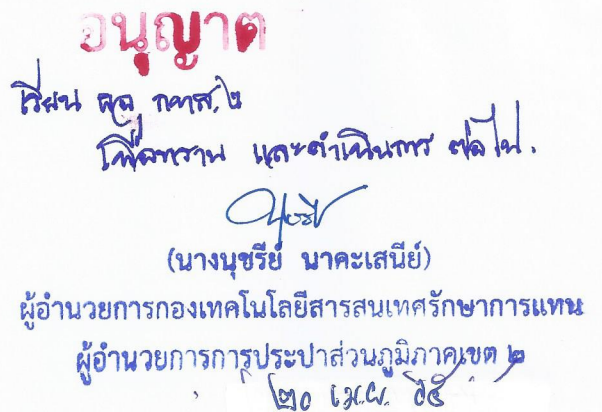 อนุญาต
เรียน ผอ กทส.๒
เพื่อทราบ และดำเนินการ ต่อไป.
(นางนุชรีย์ นาคะเสนีย์)
ผู้อำนวยการกองเทคโนโลยีสารสนเทศรักษาการแทน
ผู้อำนวยการการประปาส่วนภูมิภาคเขต ๒
๒๐ เม.ย. ๖๕